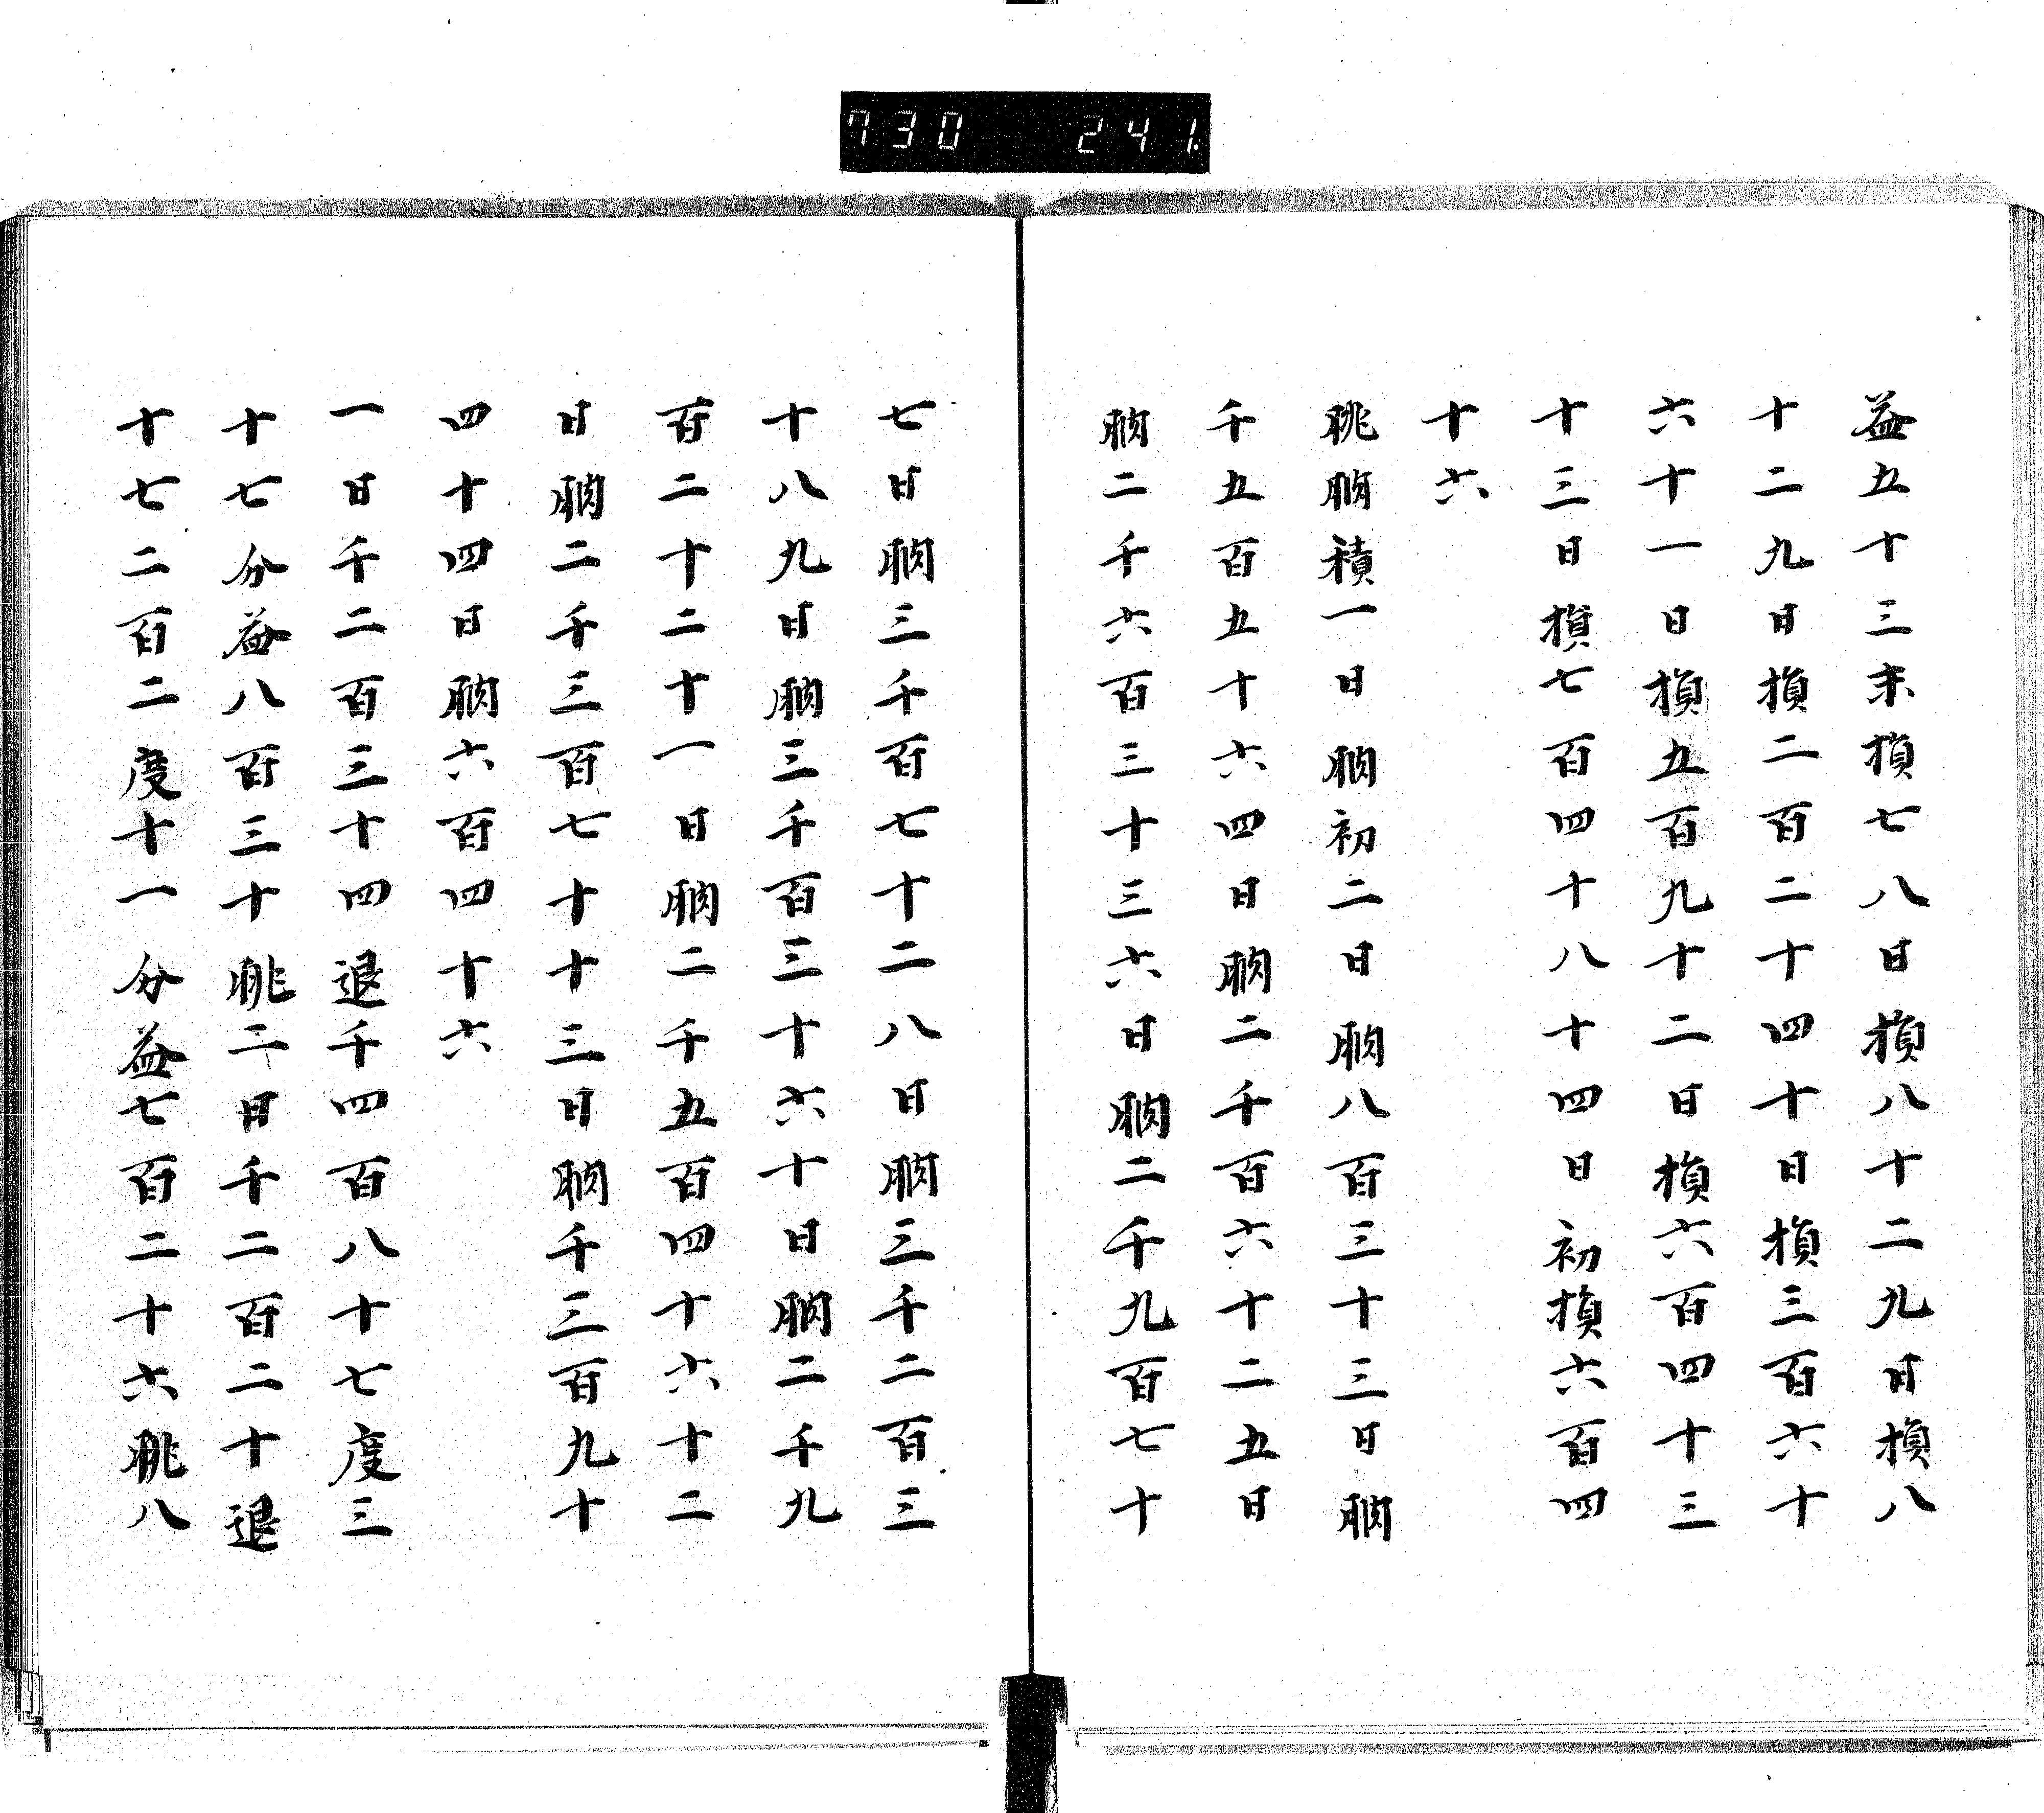 730 241.
益五十三末損七八日損八十二九日損八
十二九日損二百二十四十日損三百六十
六十一日損五百九十二日損六百四十三
十三日損七百四十八十四日初損六百四
十六
朓朒積一日朒初二日朒八百三十三日朒
千五百五十六四日朒二千百六十二五日
朒二千六百三十三六日朒二千九百七十
七日朒三千百七十二八日朒三千二百三
十八九日朒三千百三十六十日朒二千九
百二十二十一日朒二千五百四十六十二
日朒二千三百七十十三日朒千三百九十
四十四日朒六百四十六
一日千二百三十四退千四百八十七度三
十七分益八百三十朓二日千二百二十退
十七二百二度十一分益七百二十六朓八